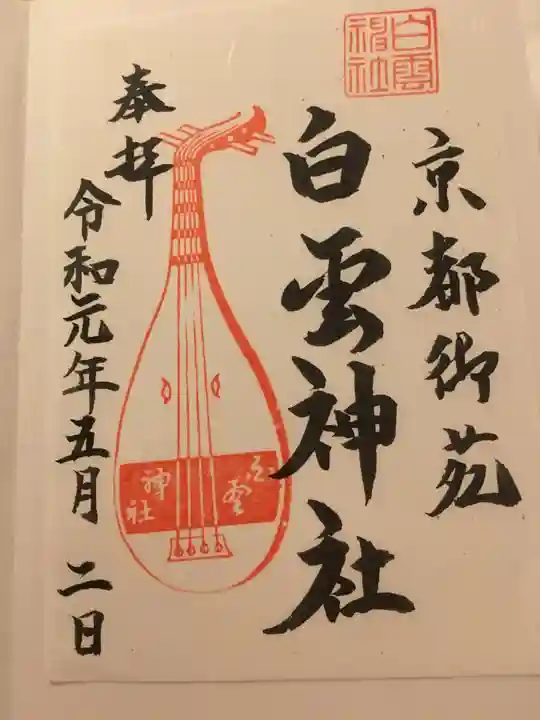 白雲
神社
京都御苑
白雲神社
白雲
神社
奉拝
令和元年五月二日